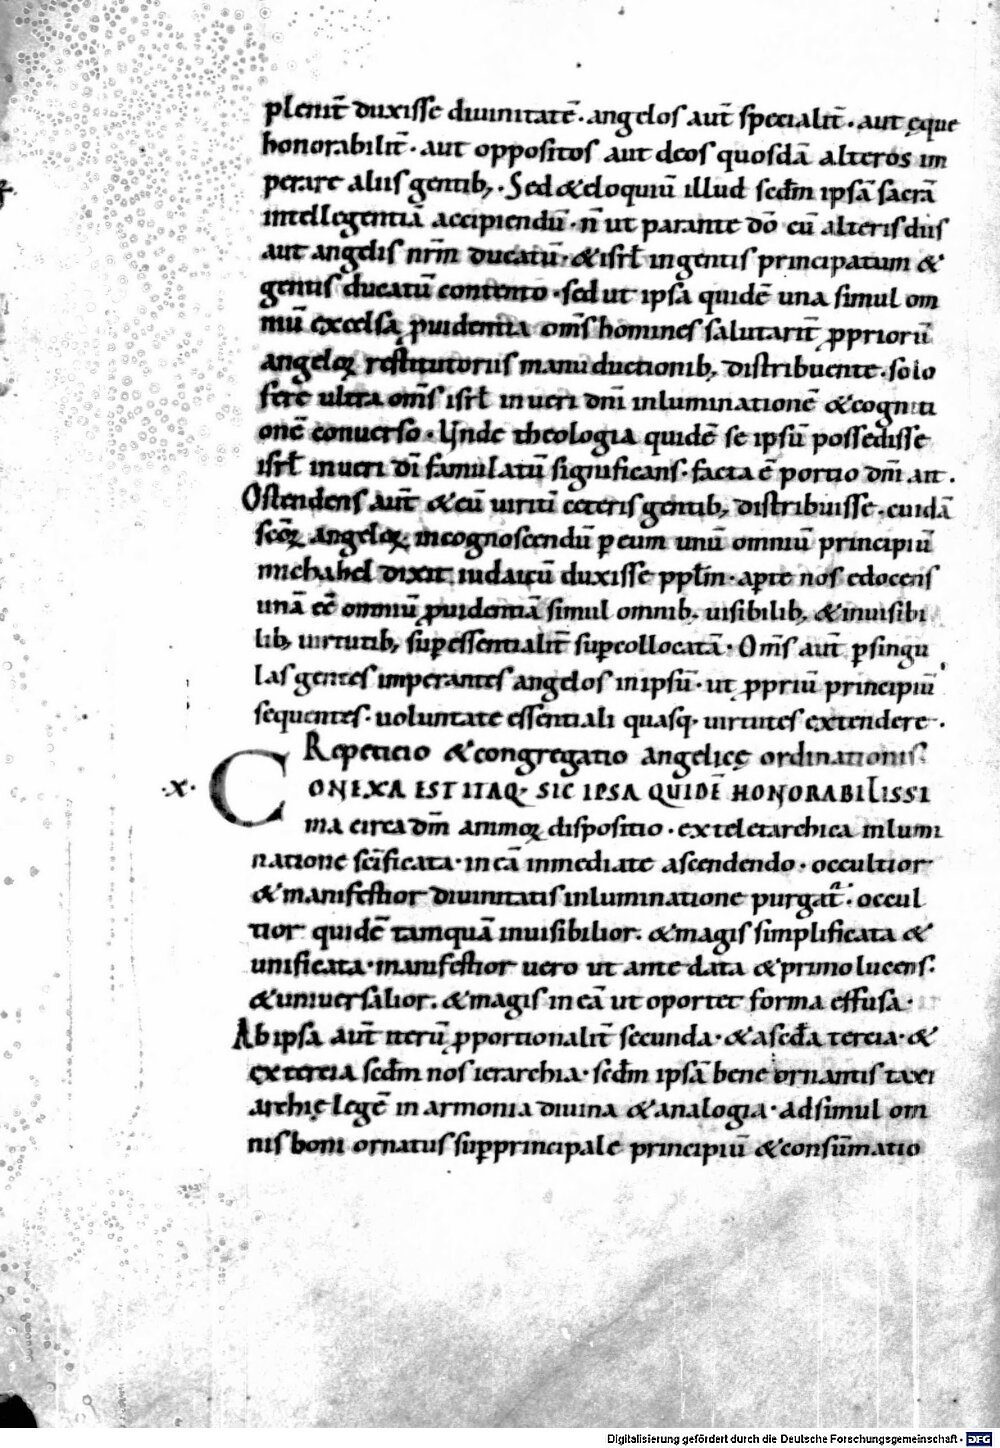 plenit̄ duxisse diuinitatē· angelos aut̄ specialit̄· aut ęque
honorabilit̄· aut oppositos aut deos quosdā alteros im
perare aliis gentib;· Sed &eloquiū illud sedm̄ ipsā sacrā
intellegentiā accipiendū· n̄ ut parante dō cū alteris diis
aut angelis nr̄m ducatū· &isrł in gentis principatum &
gentis ducatū contento· sed ut ipsa quidē una simul om
niū excelsa ꝓuidentia om̄s homines salutarit̄ ꝓpriorū
angeloꝝ restitutoriis manuductionib; distribuente· solo
fere ultra om̄s isrł in ueri dn̄i inluminationē &cogniti
onē conuerso· Unde theologia quidē se ipsū possedisse
isrł in ueri dī famulatū significans· facta ē portio dn̄i ait·
Ostendens aut̄ &eū uiritī ceteris gentib; distribuisse· cuidā
sc̄oꝝ angeloꝝ incognoscendū ꝑ eum unū omniū principiū
michahel dixit iudaicū duxisse ppłm· aꝑte nos edocens
unā ēē omniū ꝓuidentiā simul omnib; uisibilib; &inuisibi
lib; uirtutib; suꝑessentialit̄ suꝑcollocatā· Om̄s aut̄ ꝑsingu
las gentes imperantes angelos in ipsū· ut ꝓpriū principiū
sequentes· uoluntate essentiali quasq· uirtutes extendere·
Repeticio &congregatio angelicę ordinationis
·x· CONEXA EST ITAQ· SIC IPSA QUIDĒ HONORABILISSI
ma circa dm̄ animoꝝ dispositio· ex teletarchica inlumi
natione sc̄ificata· in eā immediate ascendendo· occultior
&manifestior diuinitatis inluminatione purgat̄· occul
tior quidē tamquā inuisibilior· &magis simplificata &
unificata· manifestior uero ut ante data &primo lucens·
&uniuersalior· &magis in eā ut oportet forma effusa·
Ab ipsa aut̄ iterū ꝓportionalit̄ secunda· &a seda tercia· &
ex tercia sedm̄ nos ierarchia· sedm̄ ipsā bene ornantis taxi
archię legē in armonia diuina &analogia· ad simul om
nis boni ornatus suꝑprincipale principiū &consūmatio
Digitalisierung gefördert durch die Deutsche Forschungsgemeinschaft - DFG